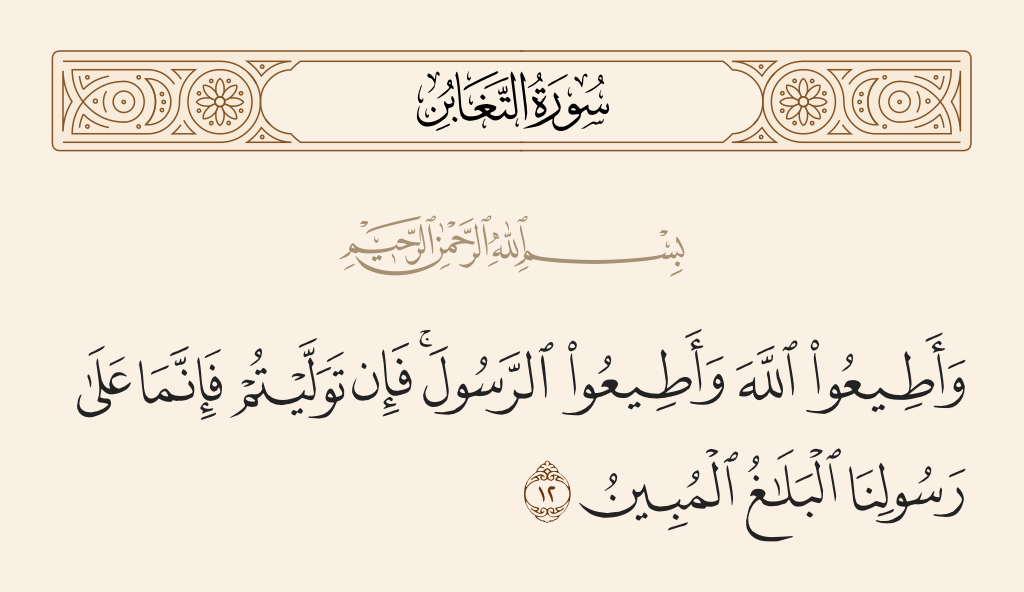 سُورَةُ التَّغَابُنِ
بِسْمِ ٱللَّهِ ٱلرَّحْمَٰنِ ٱلرَّحِيمِ
وَأَطِيعُوا۟ ٱللَّهَ وَأَطِيعُوا۟ ٱلرَّسُولَ ۚ فَإِن تَوَلَّيْتُمْ فَإِنَّمَا عَلَىٰ
رَسُولِنَا ٱلْبَلَـٰغُ ٱلْمُبِينُ ١٢